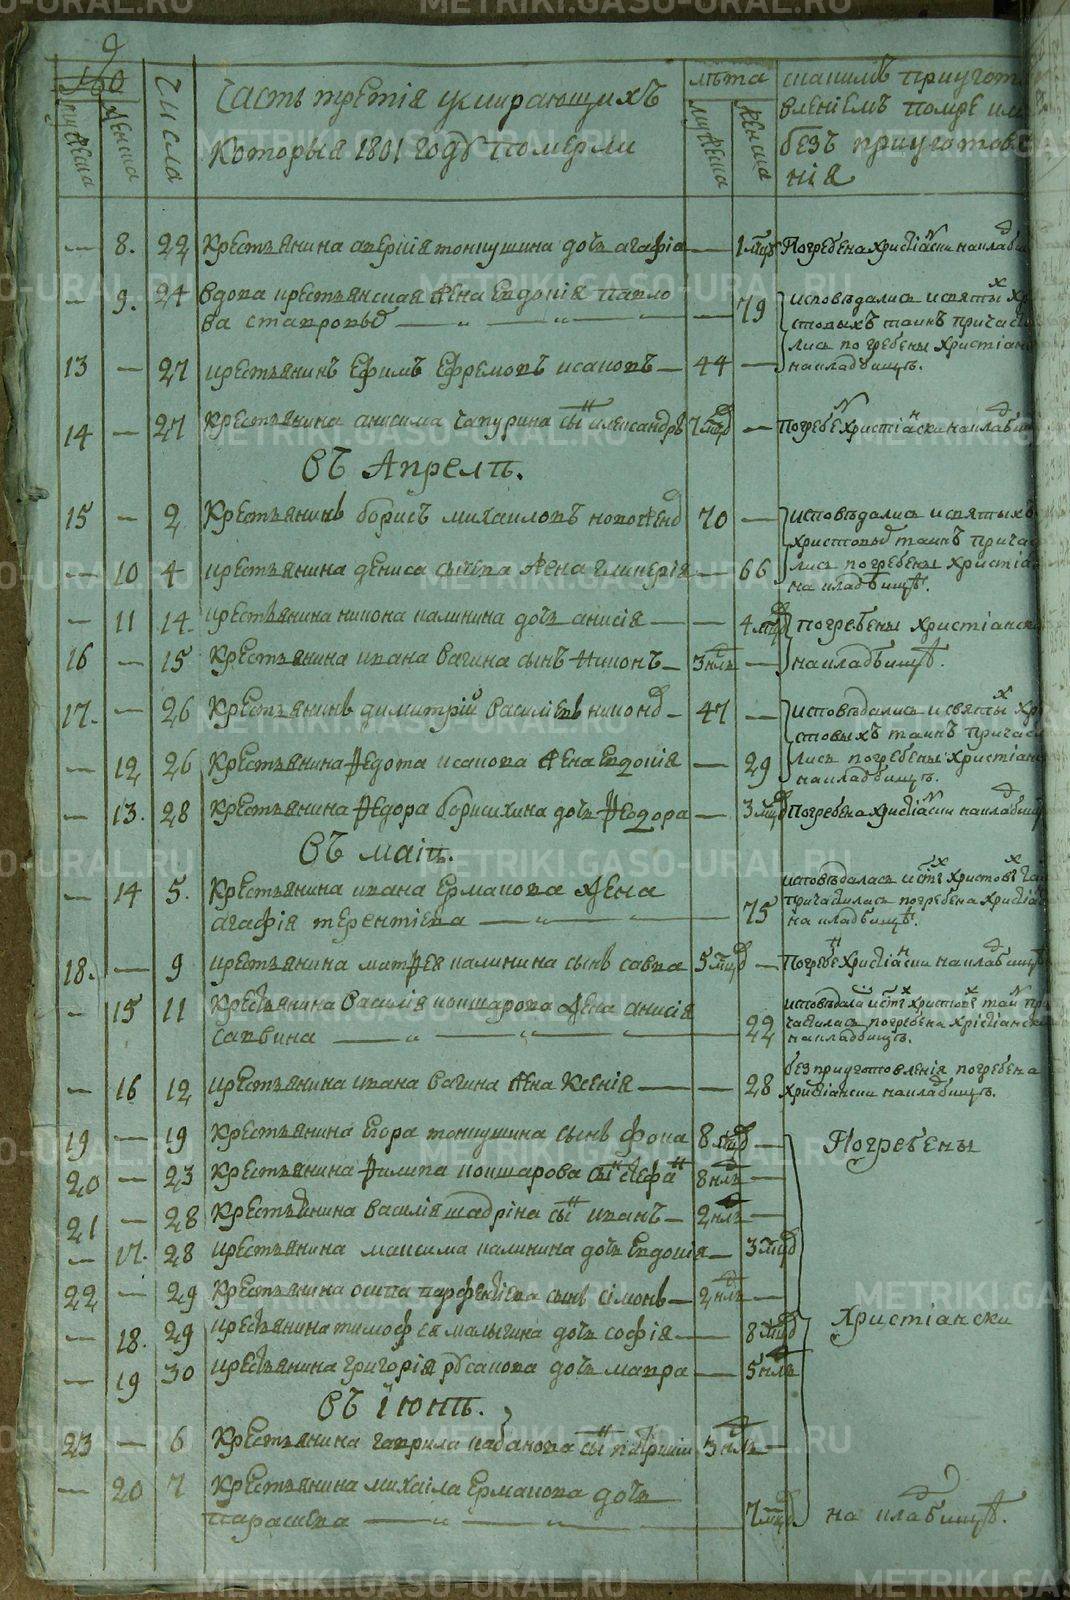 Часть третія умирающихъ
Которыя 1801 году померли
мужеска
женска
Числа
лѣта
мужеска
женска
споминъ приугото
вленіемъ помре или
безъ приуготовле
нія
— 8. 22 Крестьянина аверкія тонкушина дочь агафіа — 1 мцъ Погребена христіански накладби
— 9. 24 вдова крестьянская жена Евдокія павло
ва 79
исповѣдались и святы хри
стовыхъ таинъ причасти
лись погребены христіан
накладбищѣ.
13 — 27 крестьянинъ Ефимъ Ефремовъ исаковъ — 44 —
14 — 27 Крестьянина анисима Чапурина сынъ александръ 7 мцд — Погребе христіански накладби
Въ Апрелѣ.
15 — 2 Крестьянинъ борисъ михаиловъ 70 —
исповѣдались и святыхъ
христовыхъ таинъ прича
лись погребены христіа
на кладбищѣ.
— 10 4 крестьянина дениса сычева жена гликерія — 66
— 11 14. крестьянина никона калинина дочь анисія — — 4 мцд погребены христіански
16 — 15 Крестьянина ивана Вагина сынъ никонъ — 3 нлѣ — накладбищѣ.
17. — 26 Крестьянинъ димитрій василіевъ никонд — 47 —
исповѣдались и святы хри
стовыхъ таинъ причаст
лись погребены христіан
накладбищѣ.
— 12 26 Крестьянина Федота исакова жена Евдокія — 29
— 13. 28 Крестьянина Федора борисихина дочь Федора — 3 мцд Погребена христіански накладбищ
Въ маіи.
— 14 5. Крестьянина ивана Ермакова жена
агафія терентіева 75
исповѣдалась и стх христовх та
причастилась погребена христіан
на кладбищѣ.
18. — 9 крестьянина матфея калинина сынъ савва 5 мцд — Погребе христіански накладбищѣ
— 15 11 Крестьянина Василія кошкарова жена анисія
савина 22
исповѣдала и стх христовх таин при
частилась погребена христіански
накладбищѣ.
— 16 12 крестьянина ивана вагина жена Ксенія — — 28
без приуготовленія погребена
христіански накладбищѣ.
19 — 19 Крестьянина Егора тонкушина сынъ фока 8 мцд — Погребены
20 — 23 Крестьянина Филипа кошкарова сынъ стефанъ 8 нлѣ —
21 — 28 Крестьянина василія шадріна сынъ иванъ — 2 нлѣ —
— 17. 28 крестьянина максима калинина дочь Евдокія — 3 мцд
22 — 29 Крестьянина осипа парфентіева сынъ сімонъ — 2 нлѣ —
— 18. 29 крестьянина тимофея малыгина дочь софія — 8 мцд Христіански
— 19 30 крестьянина григорія русакова дочь мавра — 5 нлѣ
Въ іюнѣ.
23 — 6 Крестьянина гаврила кабакова сынъ 3 нлѣ —
— 20 7 Крестьянина михаіла Ермакова дочь
парасква 7 мцд на кладбищѣ.
METRIKI.GASO-URAL.RU